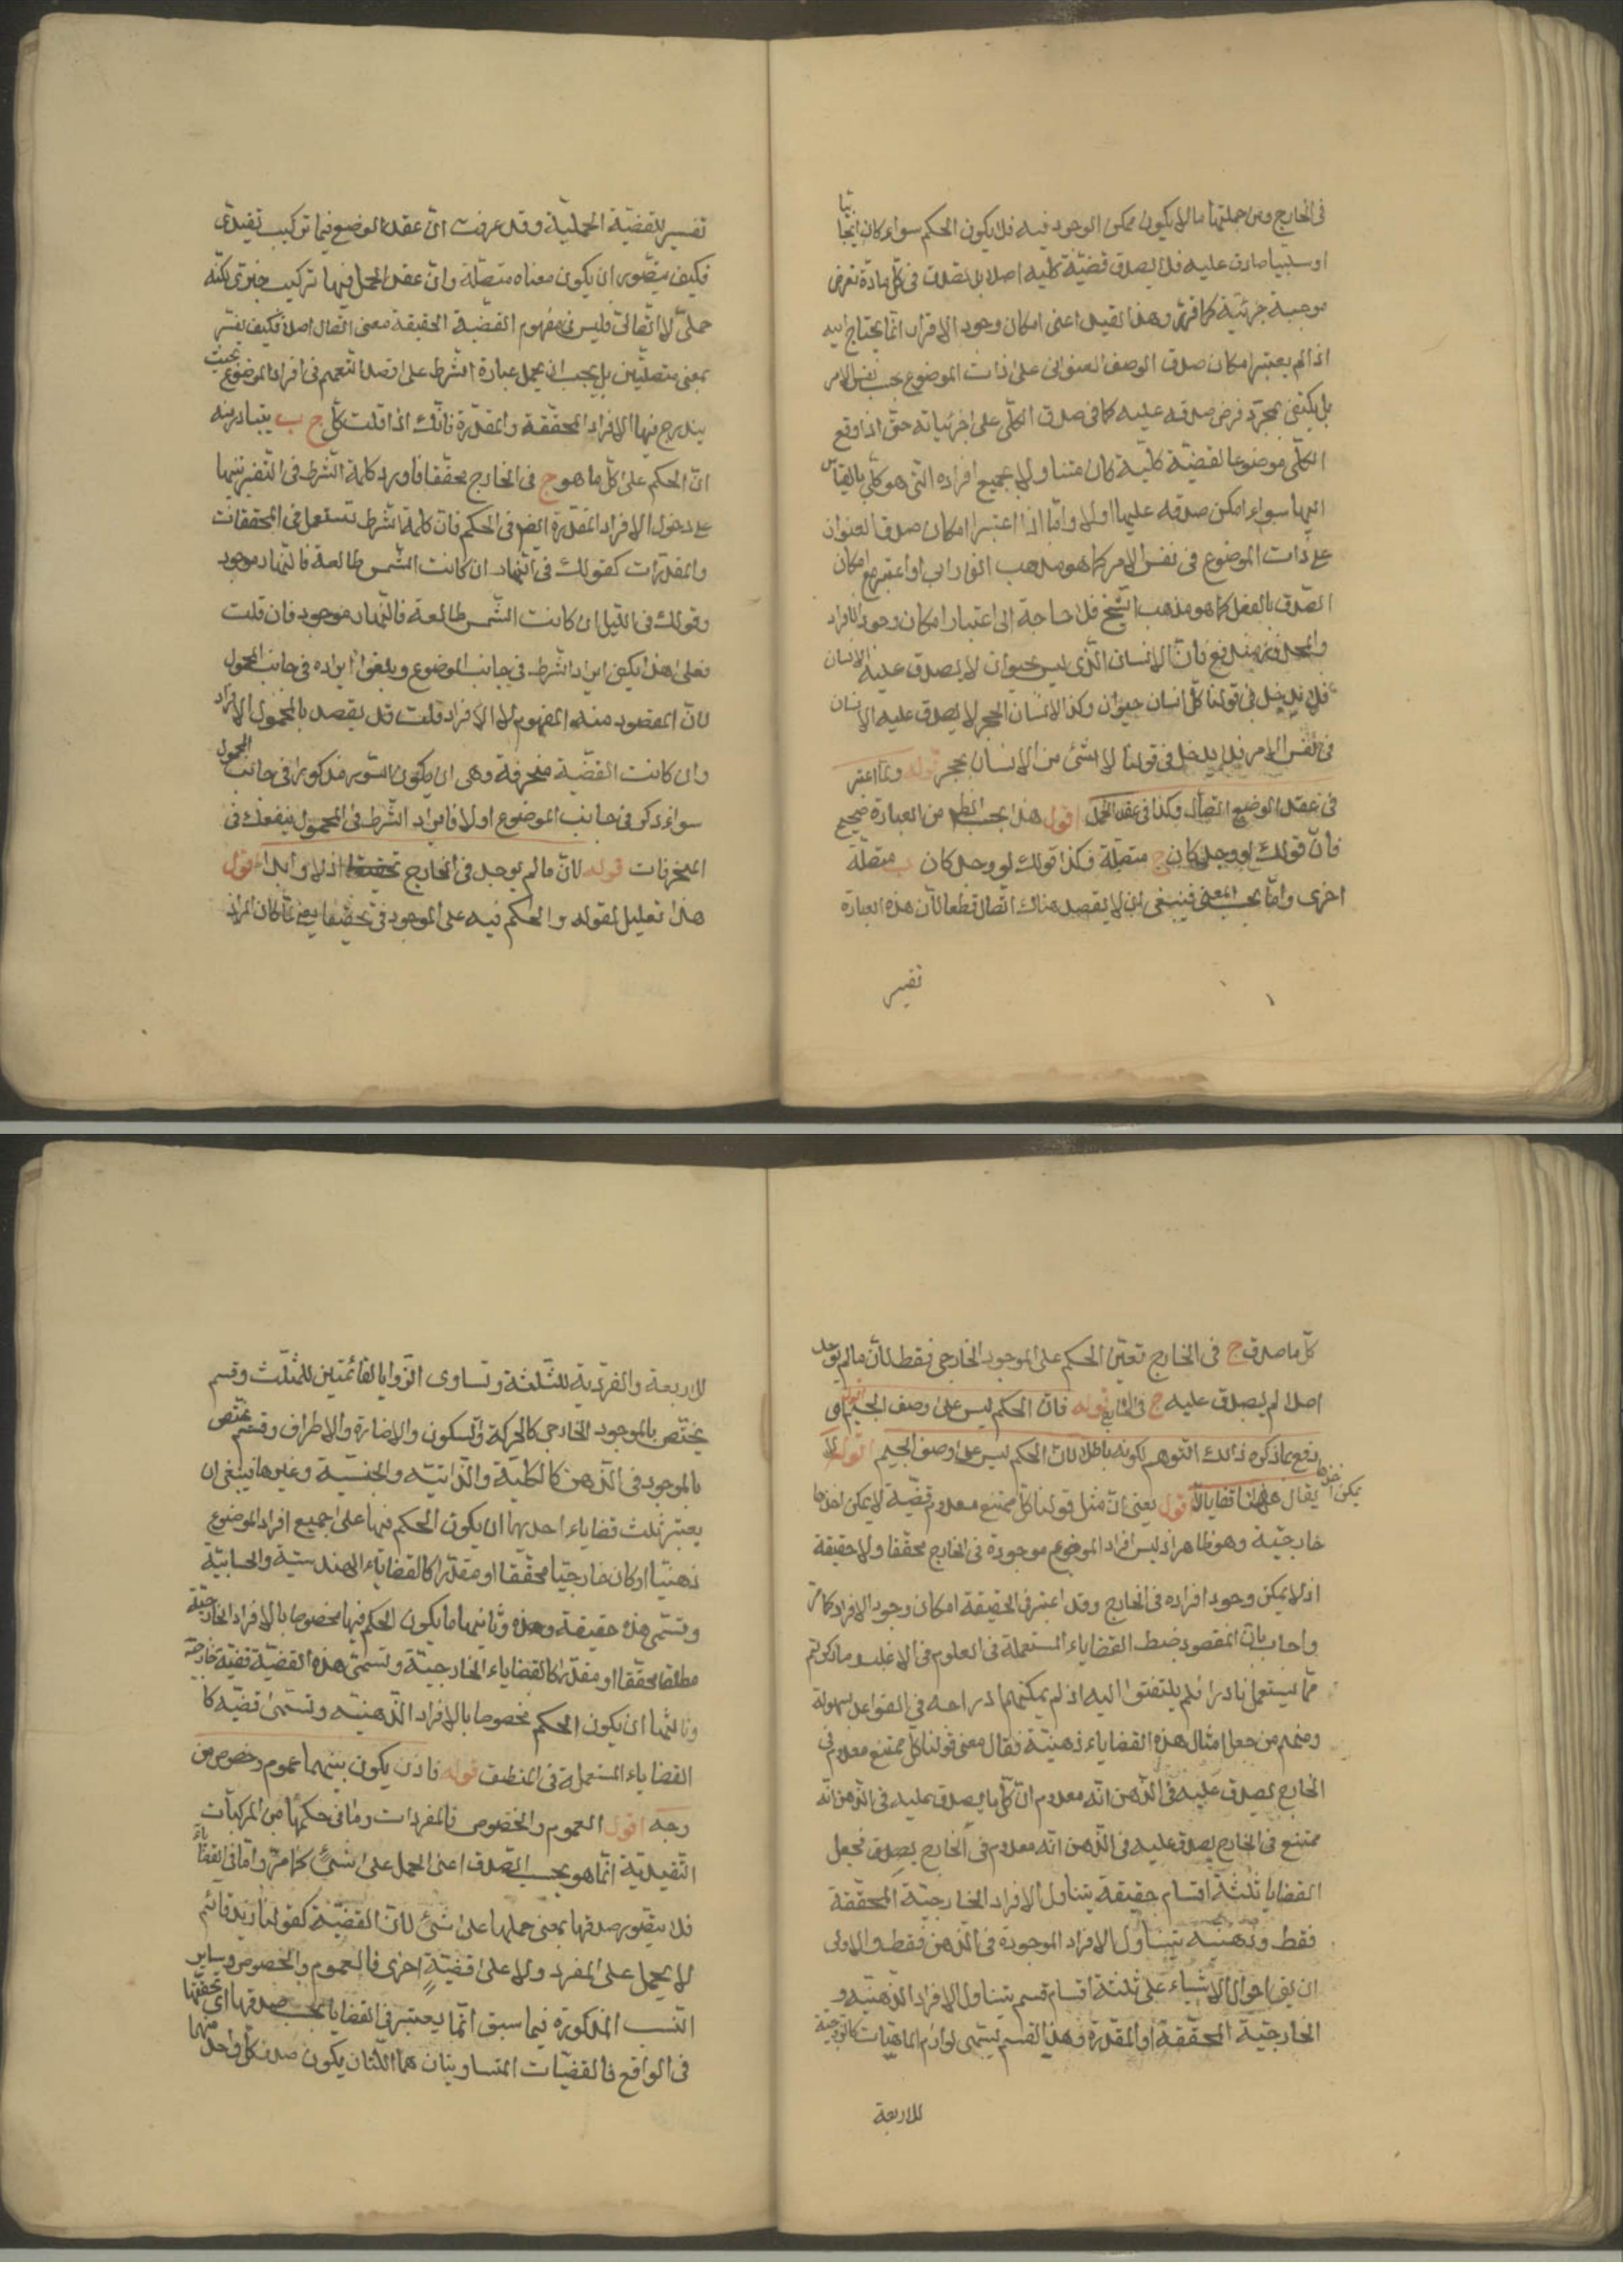 في الخارج ومن جملتها ما لا يكون ممكن الوجود فيه فلا يكون الحكم سواء كان ايجابيا
او سلبيا صادقا عليه فلا يصدق قضية كلية اصلا بل تصدق في كل مادة تفرض
موجبة جزئية كما قرر وهذا القيد اعني امكان وجود الافراد انما يحتاج اليه
اذا لم يعتبر امكان صدق الوصف العنواني على ذات الموضوع بحسب نفس الامر
بل يكتفي بمجرد فرض صدقه عليه كما في صدق الكلي على جزئياته حتى اذا وقع
الكلي موضوعا لقضية كلية كان متناولا لجميع افراده التي هو كلي بالقياس
اليها سواء امكن صدقه عليها اولا واما اذا اعتبر امكان صدق العنوان
على ذات الموضوع في نفس الامر كما هو مذهب الفارابي او اعتبر مع امكان
الصدق بالفعل كما هو مذهب الشيخ فلا حاجة الى اعتبار امكان وجود الافراد
والمحذور مندفع فان الانسان الذي ليس بحيوان لا يصدق عليه الانسان
فلا يدخل في قولنا كل انسان حيوان وكذا الانسان الحجر لا يصدق عليه الانسان
في نفس الامر فلا يدخل في قولنا لا شئ من الانسان بحجر قوله ولما اعتبر
في عقد الوضع اتصال وكذا في عقد الحمل اقول هذا بحسب الظ من العبارة صحيح
فان قولك لو وجد كان ج متصلة وكذا قولك لو وجد كان ب متصلة
اخرى واما بحسب المعنى فينبغي ان لا يقصد هناك اتصال قطعا لان هذه العبارة
تفسير
تفسير للقضية الحملية وقد عرفت ان عقد الوضع فيها تركيب تقييدي
فكيف يتصور ان يكون معناه متصلة وان عقد الحمل فيها تركيب خبري لكنه
حملي لا اتصالي فليس في مفهوم القضية الحقيقة معنى اتصال اصلا فكيف يفسر
بمعنى متصلتين بل يجب ان يحمل عبارة الشرط على قصد التعميم في افراد الموضوع بحيث
يندرج فيها الافراد المحققة والمقدرة فانك اذا قلت كل ج ب يتبادر منه
ان الحكم على كل ما هو ج في الخارج محققا فاورد كلمة الشرط في التفسير تنبيها
على دخول الافراد المقدرة ايضا في الحكم فان كلمة الشرط تستعمل في المحققات
والمقدرات كقولك في النهار ان كانت الشمس طالعة فالنهار موجود
وقولك في الليل ان كانت الشمس طالعة فالنهار موجود فان قلت
فعلى هذا يكفي ايراد الشرط في جانب الموضوع ويلغوا ايراده في جانب المحمول
لان المقصود منه المفهوم لا الافراد قلت قد يقصد بالمحمول الافراد
وان كانت القضية منحرفة وهي ان يكون السور مذكورا في جانب المحمول
سواء ذكر في جانب الموضوع اولا فايراد الشرط في المحمول ينفعك في
المنحرفات قوله لان ما لم يوجد في الخارج تحقيقا اذ لا وابدا اقول
هذا تعليل لقوله والحكم فيه على الموجود في تحقيقا يعني لما كان المراد
كل ما صدق ج في الخارج تعين الحكم على الموجود الخارجي فقط لان ما لم يوجد
اصلا لم يصدق عليه ج في الخارج قوله فان الحكم ليس على وصف الجيم اقول اي
دفع بما ذكره ذلك التوهم لكونه باطلا لان الحكم ليس على وصف الجيم اقوله لا
يقال ههنا قضايا لا يمكن اخذها اقول يعني ان مثل قولنا كل ممتنع معدوم قضية لا يمكن اخذها
خارجية وهو ظاهر اذ ليس افراد الموضوع موجودة في الخارج محققا ولا حقيقة
اذ لا يمكن وجود افراده في الخارج وقد اعتبر في الحقيقة امكان وجود الافراد كما مر
واجاب بان المقصود ضبط القضاياء المستعملة في العلوم في الاغلب وما ذكرتم
مما يستعمل نادرا فلم يلتفتوا اليه اذ لم يمكنهم ادراجه في القواعد بسهولة
ومنهم من جعل امثال هذه القضاياء ذهنية فقال معنى قولنا كل ممتنع معدوم في
الخارج يصدق عليه في الذهن انه معدوم ان كل ما يصدق عليه في الذهن انه
ممتنع في الخارج يصدق عليه في الذهن انه معدوم في الخارج يصدق فجعل
القضايا ثلثة اقسام حقيقة يتناول الافراد الخارجية المحققة
فقط وذهنية يتناول الافراد الموجودة في الذهن فقط والاولى
ان يق احوال الاشياء على ثلثة اقسام قسم يتناول الافراد الذهنية و
الخارجية المحققة او المقدرة وهذا القسم يسمى لوازم الماهيات كالزوجية
للاربعة
للاربعة والفردية للثلثة وتساوى الزوايا لقائمتين للمثلث وقسم
يختص بالموجود الخارجي كالحركة والسكون والاضاءة والاطراف وقسم يختص
بالموجود في الذهن كالكلية والذاتية والجنسية وغيرها فينبغي ان
يعتبر ثلث قضاياء احديها ان يكون الحكم فيها على جميع افراد الموضوع
ذهنيا او كان خارجيا محققا او مقدرا كالقضاياء الهندسية والحسابية
وتسمى هذه حقيقة وهذه وثانيها ما يكون الحكم فيها مخصوصا بالافراد الخارجية
مطلقا محققا او مقدرا كالقضاياء الخارجية وتسمى هذه القضية قضية خارجية
وثالثها ان يكون الحكم مخصوصا بالافراد الذهنية وتسمى قضية كا
القضاياء المستعملة في المنطق قوله فاذن يكون بينهما عموم وخصوص من
وجه اقول العموم والخصوص فالمفردات وما في حكمها من المركبات
التقييدية انما هو بحسب الصدق اعني الحمل على شئ كما مر واما في القضاياء
فلا يتصور صدقها بمعنى حملها على شئ لان القضية كقولنا زيد قائم
لا يحمل على المفرد ولا على قضية اخرى فالعموم والخصوص وساير
النسب المذكورة فيما سبق انما يعتبر في القضايا بحسب صدقها اي تحققها
في الواقع فالقضيتان المتساويتان هما اللتان يكون صدق كل واحد منهما